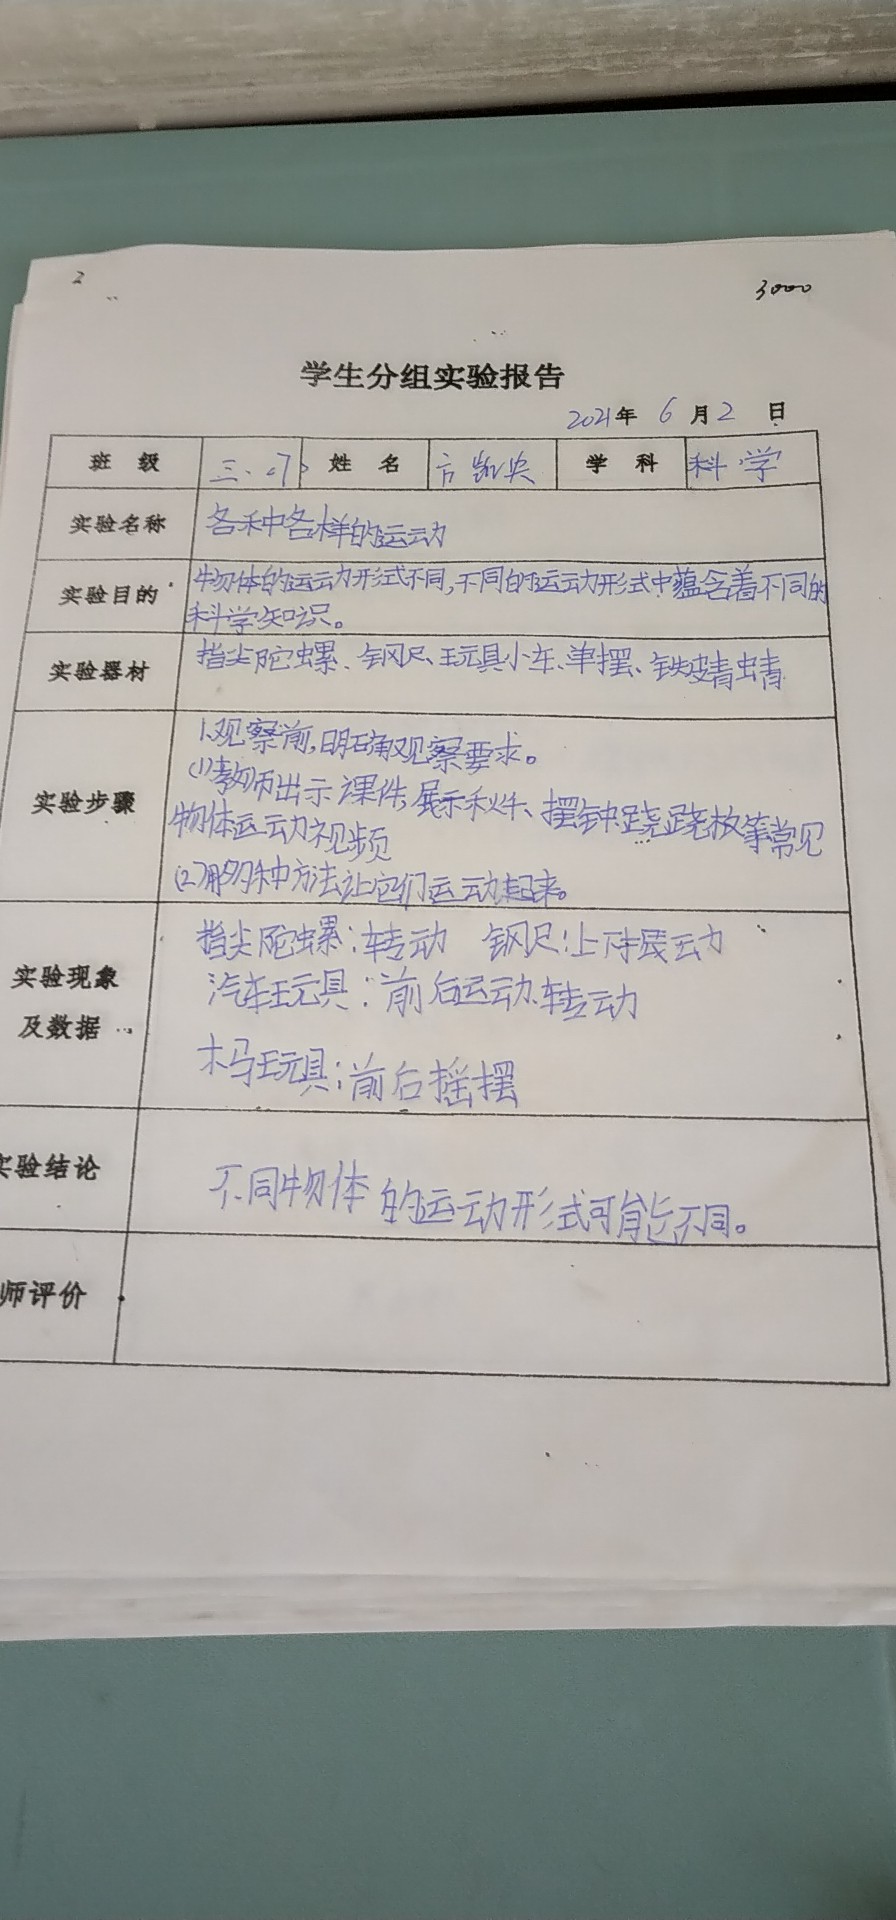 2
3000
学生分组实验报告
2021年 6 月 2 日
班 级 三.(7) 姓 名 方凯央 学 科 科学
实验名称 各种各样的运动
实验目的 物体的运动形式不同,不同的运动形式中蕴含着不同的
科学知识。
实验器材 指尖陀螺、钢尺、玩具小车、单摆、铁皮青蛙
实验步骤 1.观察前,明确观察要求。
(1)教师出示课件,展示秋千、摆钟、跷跷板等常见
物体运动视频
(2)用多种方法让它们运动起来。
实验现象
及数据
指尖陀螺:转动 钢尺:上下振动
汽车玩具:前后运动、转动
木马玩具:前后摇摆
实验结论 不同物体的运动形式可能不同。
师评价